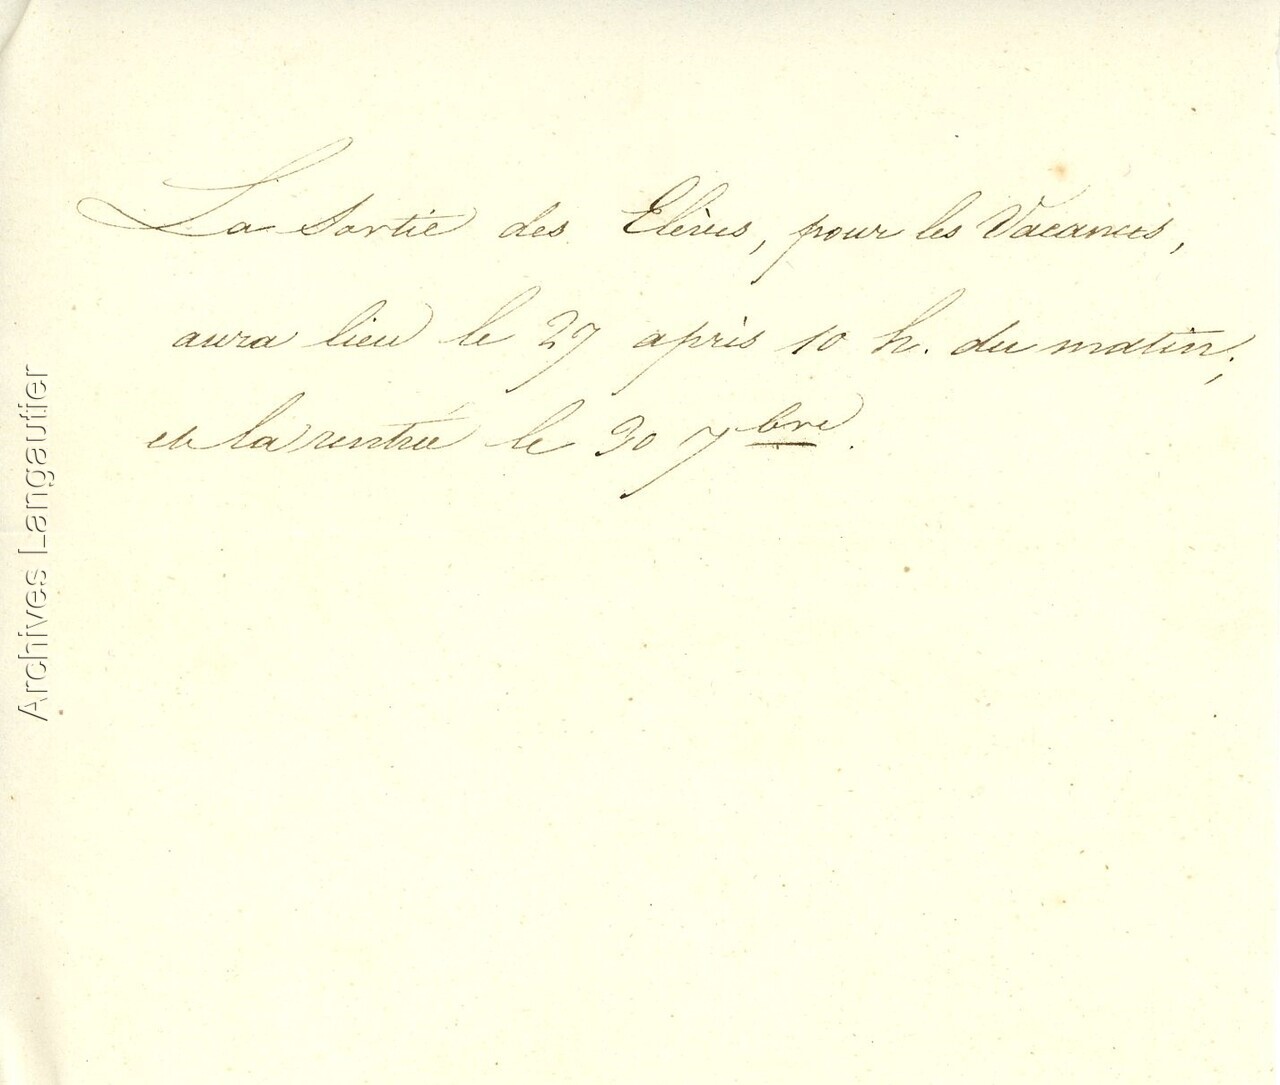 La Sortie des Elèves, pour les Vacances,
aura lieu le 27 après 10 h. du matin;
et la rentrée le 30 7bre.
Archives Langautier